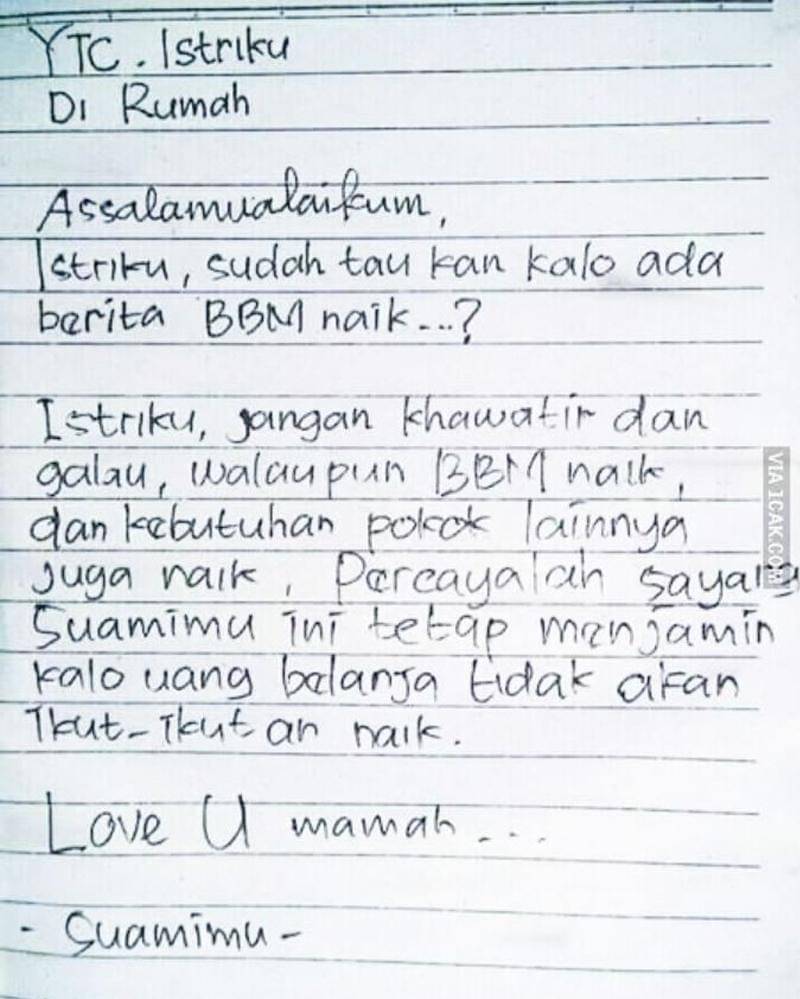 YTC. Istriku
Di Rumah
Assalamualaikum,
Istriku, sudah tau kan kalo ada
berita BBM naik...?
Istriku, jangan khawatir dan
galau, walaupun BBM naik,
dan kebutuhan pokok lainnya
juga naik, Percayalah sayang
Suamimu ini tetap menjamin
kalo uang belanja tidak akan
Ikut-ikutan naik.
Love U mamah...
- Suamimu -
VIA 1CAK.COM